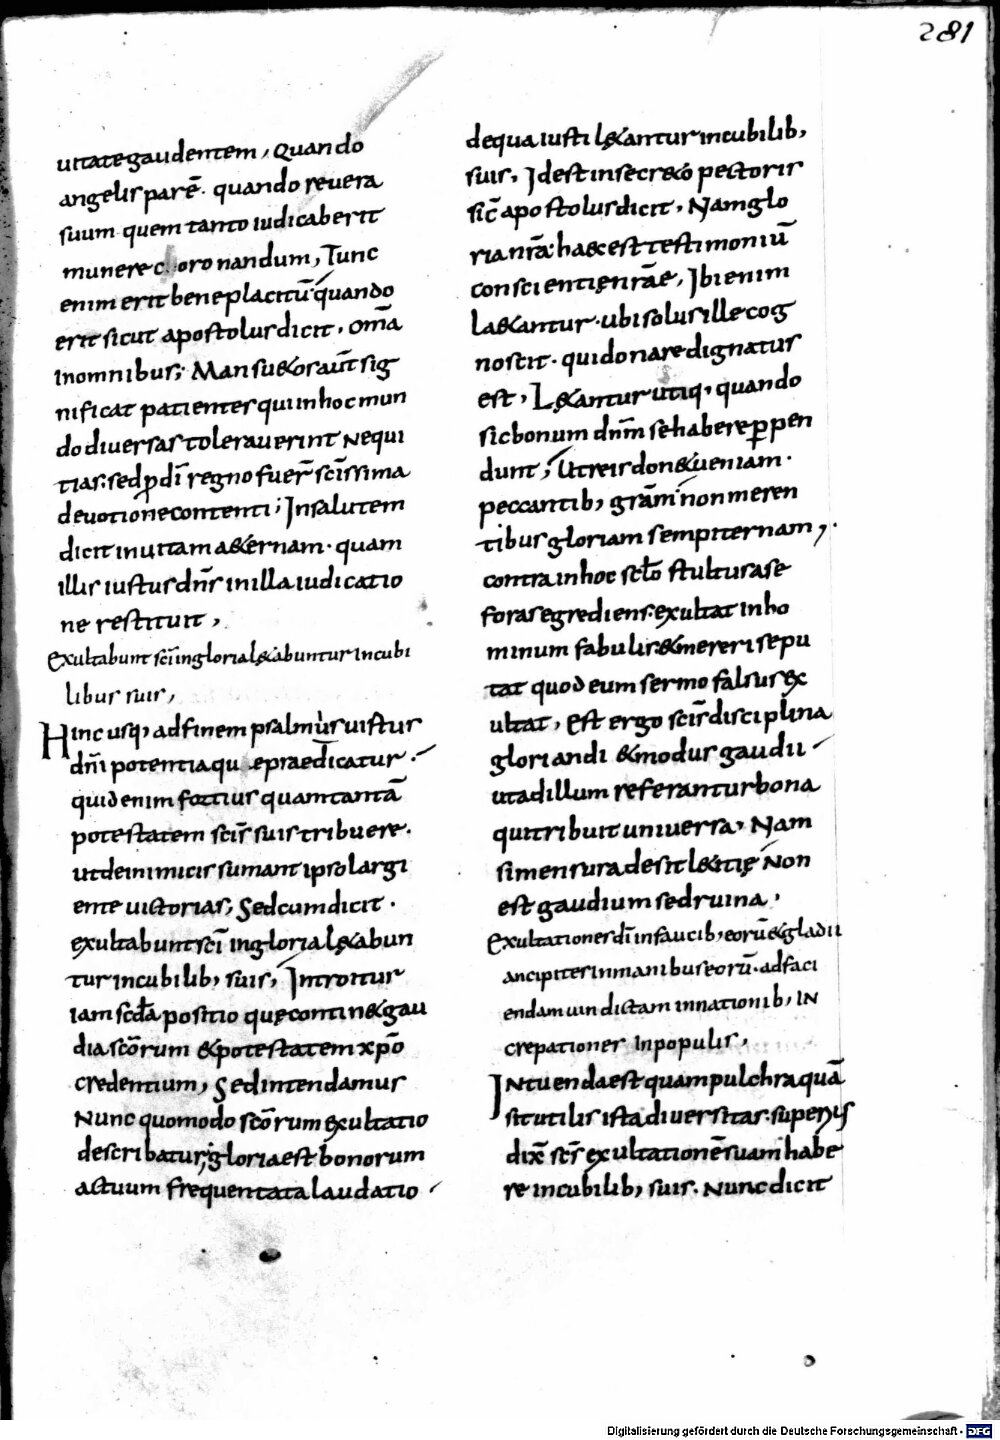 281
uitate gaudentem, Quando
angelis parē. quando reuera
suum quem tanto iudicaberit
munere c oronandum, Tunc
enim erit beneplacitū quando
erit sicut apostolus dicit, om̄a
inomnibus; Mansu&os aut̄ sig
nificat patienter qui in hoc mun
do diuersas tolerauerint nequi
tias. sed ꝓ dī regno fuer̄ sc̄issima
deuotione contenti; In salutem
dicit inuitam a&ernam. quam
illis iustus dn̄s in illa iudicatio
ne restituit,
Exultabunt sc̄i in gloria l&abuntur in cubi
libus suis,
Hinc usq, ad finem psalmus uistus
dn̄i potentia qu e praedicatur.
quid enim fortius quam tantā
potestatem sc̄is suis tribuere.
ut de inimicis sumant ipso largi
ente uictorias, Sed cum dicit.
exultabunt sc̄i in gloria l&abun
tur in cubilib, suis, Introitur
iam sc̄da positio quę contin& gau
dia sc̄orum & potestatem xp̄o
credentium, Sed intendamus
Nunc quomodo sc̄orum exultatio
describatur; gloria est bonorum
actuum frequentata laudatio
de qua iusti l&antur in cubilib,
suis, Id est in secr&o pectoris
sic̄ apostolus dicit, Nam glo
ria nr̄a: haec est testimoniū
conscientię nr̄ae, Ibi enim
la&antur. ubi solus ille cog
noscit. qui donare dignatus
est, L&antur utiq, quando
sic bonum dn̄m se habere ꝑpen
dunt, Ut reis don& ueniam.
peccantib, grām. non meren
tibus gloriam sempiternam,
contra in hoc sc̄lo stultus a se
foras egrediens. exultat in ho
minum fabulis. & mereri se pu
tat quod eum sermo falsus ex
ultat, Est ergo sc̄is disciplina
gloriandi & modus gaudii
ut ad illum referantur bona
qui tribuit uniuersa, Nam
si mensura desit l&itię Non
est gaudium sed ruina,
Exultationes dī in faucib, eorū & gladii
ancipites in manibus eorū. ad faci
endam uindictam in nationib, IN
crepationes In populis,
INtuenda est quam pulchra quā
sit utilis ista diuersitas. superius
dix̄ sc̄s exultationē suam habe
re in cubilib, suis. Nunc dicit
Digitalisierung gefördert durch die Deutsche Forschungsgemeinschaft - DFG